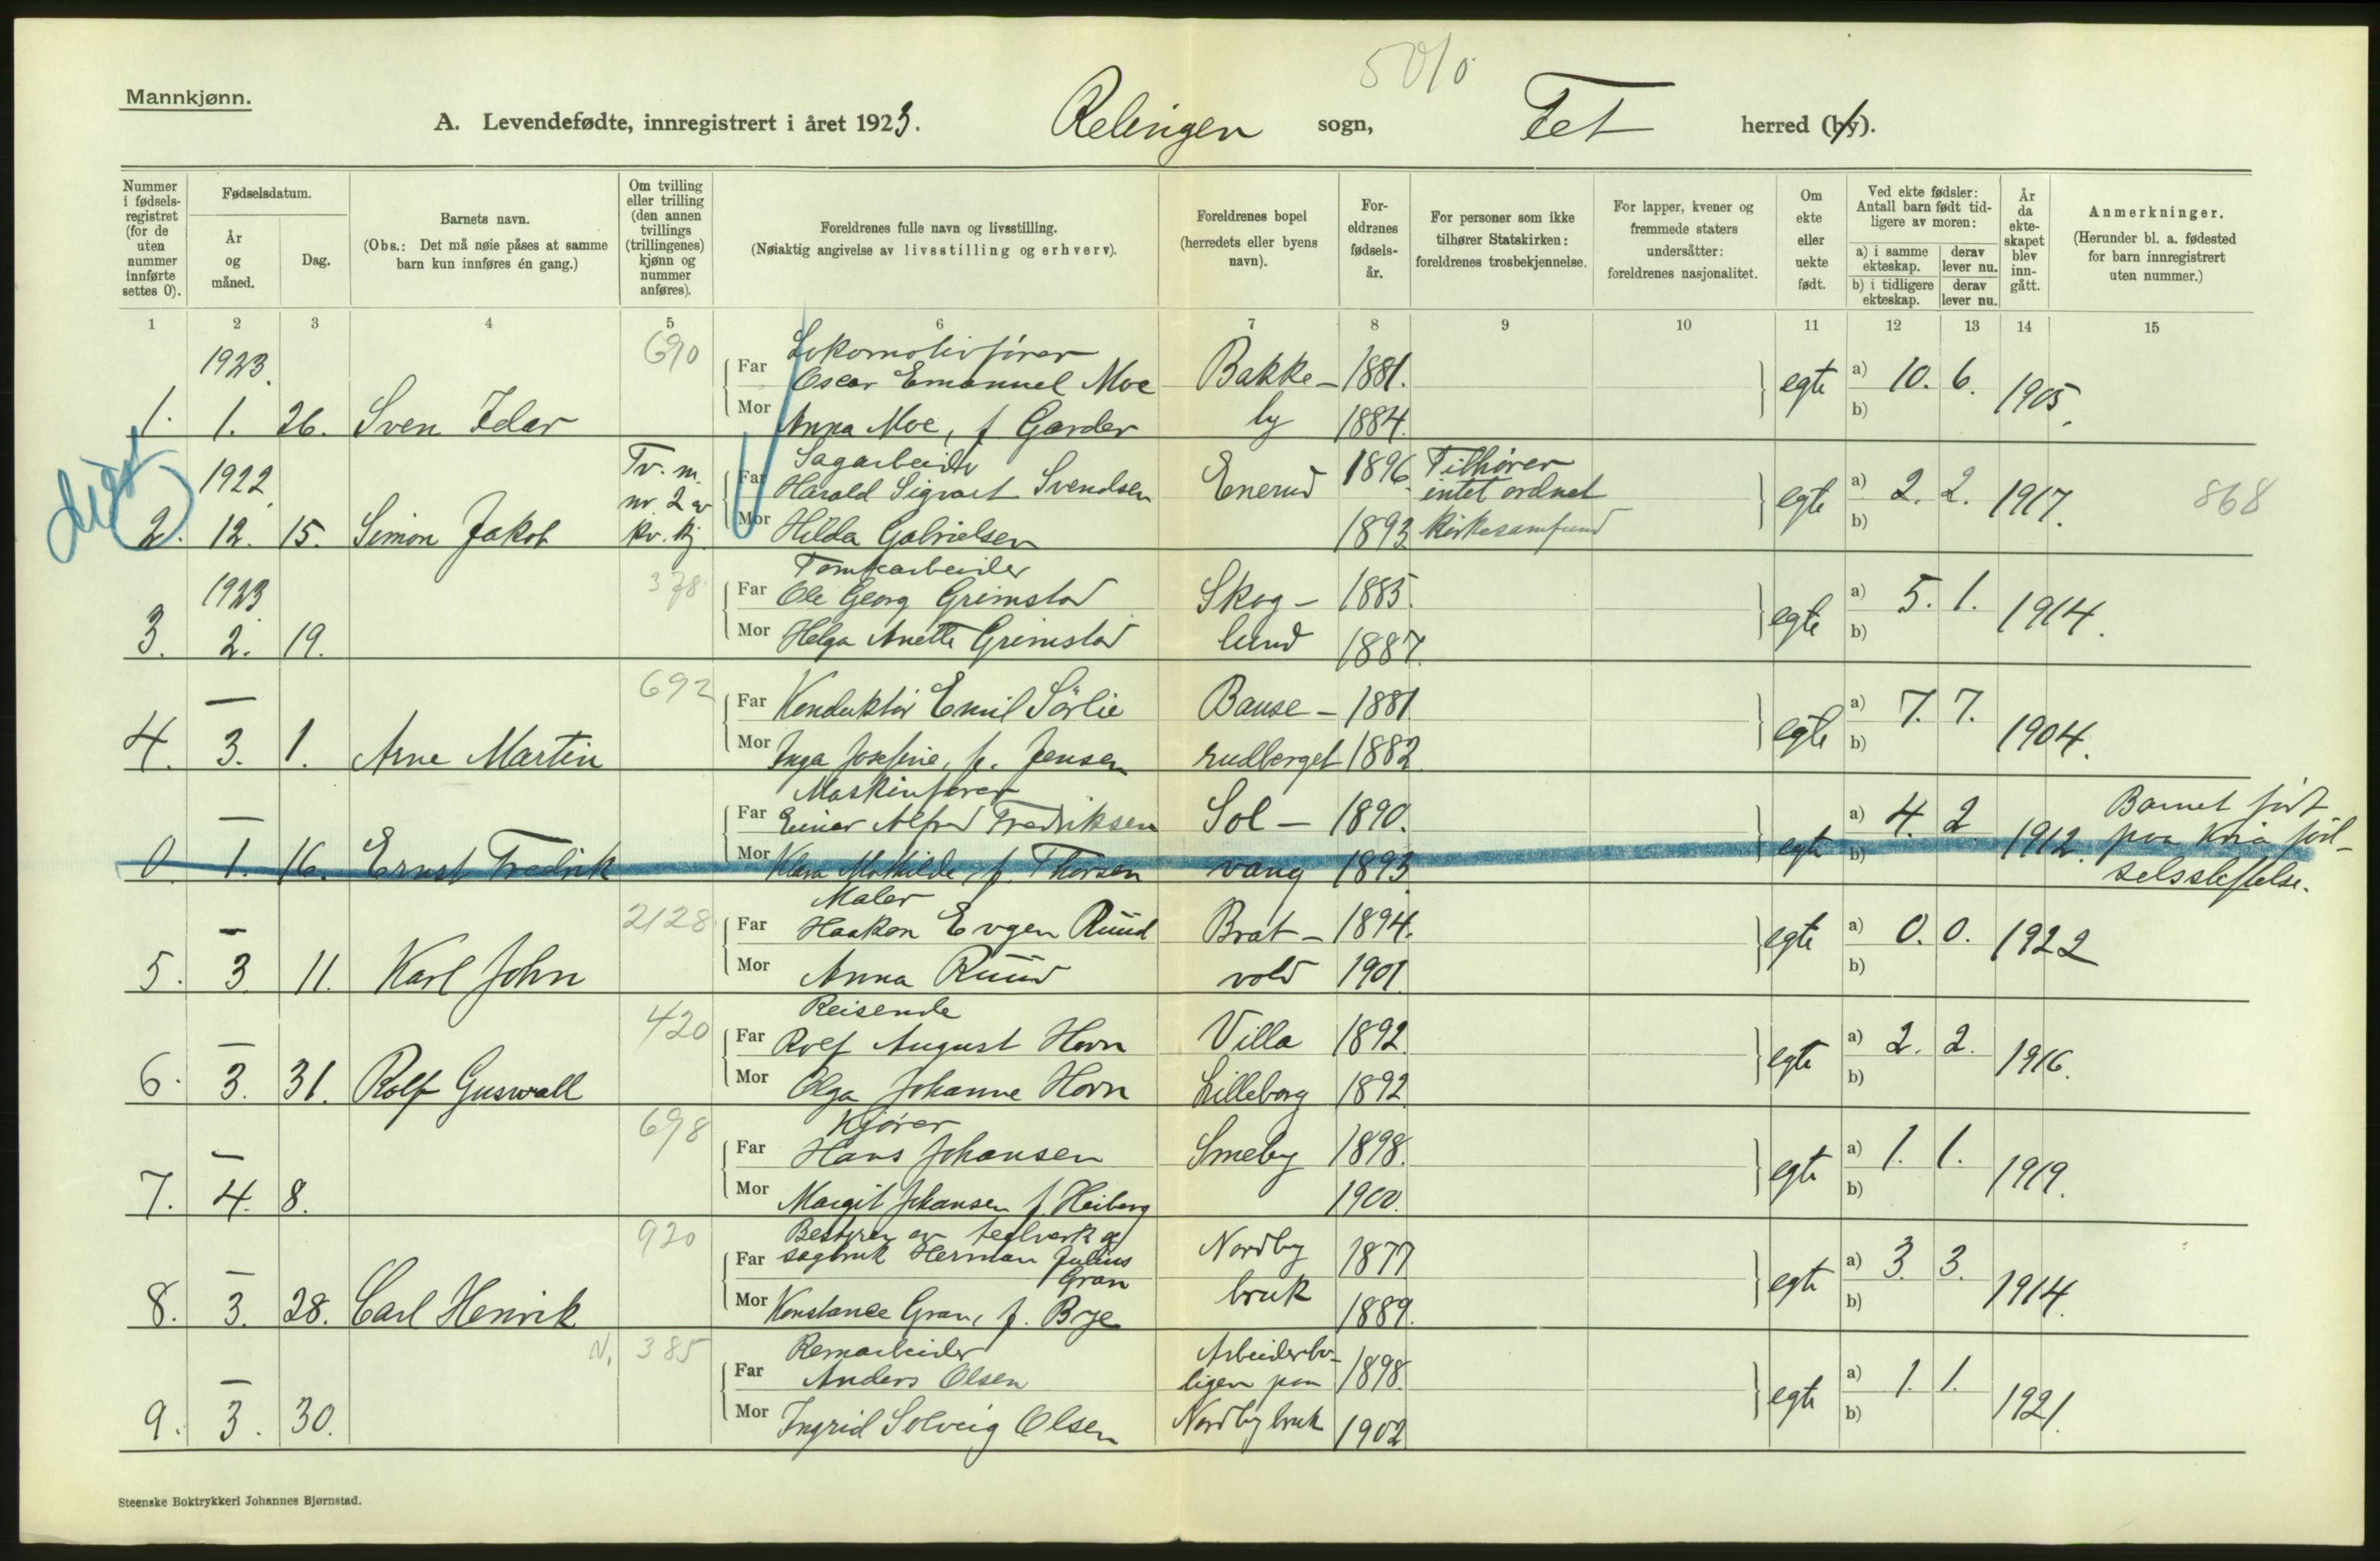 5010
Mannkjønn.
A. Levendefødte, innregistrert i året 1923. Relingen sogn, Fet herred (by).
Nummer i fødselsregistret (for de uten nummer innførte settes 0).
Fødselsdatum.
År og måned.
Dag.
Barnets navn.
(Obs.: Det må nøie påses at samme barn kun innføres én gang.)
Om tvilling eller trilling (den annen tvillings (trillingenes) kjønn og nummer anføres).
Foreldrenes fulle navn og livsstilling.
(Nøiaktig angivelse av livsstilling og erhverv).
Foreldrenes bopel (herredets eller byens navn).
Foreldrenes fødselsår.
For personer som ikke tilhører Statskirken: foreldrenes trosbekjennelse.
For lapper, kvener og fremmede staters undersåtter: foreldrenes nasjonalitet.
Om ekte eller uekte født.
Ved ekte fødsler: Antall barn født tidligere av moren:
a) i samme ekteskap. derav lever nu.
b) i tidligere ekteskap. derav lever nu.
År da ekteskapet blev inngått.
Anmerkninger.
(Herunder bl. a. fødested for barn innregistrert uten nummer.)
1 2 3 4 5 6 7 8 9 10 11 12 13 14 15
1923. 690 Lokomotivfører
Far Oscar Emanuel Moe Bakke- 1881. egte a) 10. 6. 1905.
1. 1. 26. Sven Idar Mor Anna Moe, f. Garder by 1884. b)
1922. Tv. m. nr. 2 av kv. kj. Sagarbeider
Far Harald Sigvart Svendsen Enerud 1896. Tilhører intet ordnet egte a) 2. 2. 1917. 868
2. 12. 15. Simon Jakob Mor Hilda Gabrielsen 1893 kirkesamfund b)
1923 378 Tomtearbeider
Far Ole Georg Grimstad Skog- 1885. egte a) 5. 1. 1914.
3. 2. 19. Mor Helga Anette Grimstad lund 1887. b)
— 692 Far Konduktør Emil Sørlie Bause- 1881 egte a) 7. 7. 1904.
4. 3. 1. Arne Martin Mor Inga Josefine, f. Jensen rudberget 1882 b)
— Maskinfører
Far Einar Alfred Fredriksen Sol- 1890. egte a) 4. 2. 1912. Barnet født
0. 1. 16. Ernst Fredrik Mor Klara Mathilde, f. Thorsen vang 1893. b) paa Kria fød-
selsstiftelse.
— 2128 Maler
Far Haakon Evgen Ruud Brat- 1894. egte a) 0. 0. 1922
5. 3. 11. Karl John Mor Anna Ruud vold 1901. b)
— 420 Reisende
Far Rolf August Horn Villa 1892. egte a) 2. 2. 1916.
6. 3. 31. Rolf Guswall Mor Olga Johanne Horn Lilleborg 1892. b)
— 698 Kjører
Far Hans Johansen Smeby 1898. egte a) 1. 1. 1919.
7. 4. 8. Mor Margit Johansen f. Heiberg 1900. b)
— 920 Bestyrer av teglverk og
Far sagbruk Herman Julius Gran Nordby 1877 egte a) 3. 3. 1914.
8. 3. 28. Carl Henrik Mor Konstance Gran, f. Bye bruk 1889. b)
— N. 385 Remarbeider Arbeiderbo-
Far Anders Olsen ligen paa 1898. egte a) 1. 1. 1921.
9. 3. 30. Mor Ingrid Solveig Olsen Nordby bruk 1902 b)
Steenske Boktrykkeri Johannes Bjørnstad.